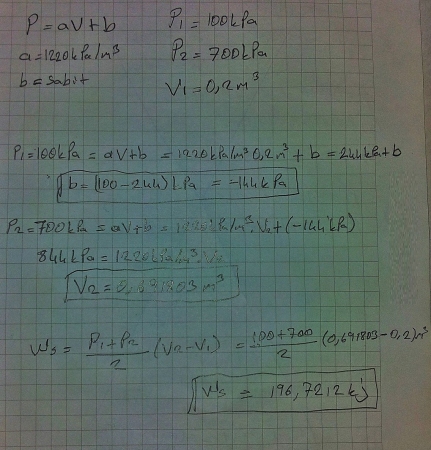 P = aV + b P₁ = 100kPa
a = 1220kPa/m³ P₂ = 700kPa
b = Sabit V₁ = 0,2m³
P₁ = 100kPa = aV + b = 1220kPa/m³ 0,2m³ + b = 244kPa + b
b = (100 - 244) kPa = -144kPa
P₂ = 700kPa = aV + b = 1220kPa/m³. V₂ + (-144kPa)
844kPa = 1220kPa/m³. V₂
V₂ = 0,691803 m³
Ws = P₁ + P₂ / 2 (V₂ - V₁) = 100 + 700 / 2 (0,691803 - 0,2)m³
Ws = 196,7212 kj